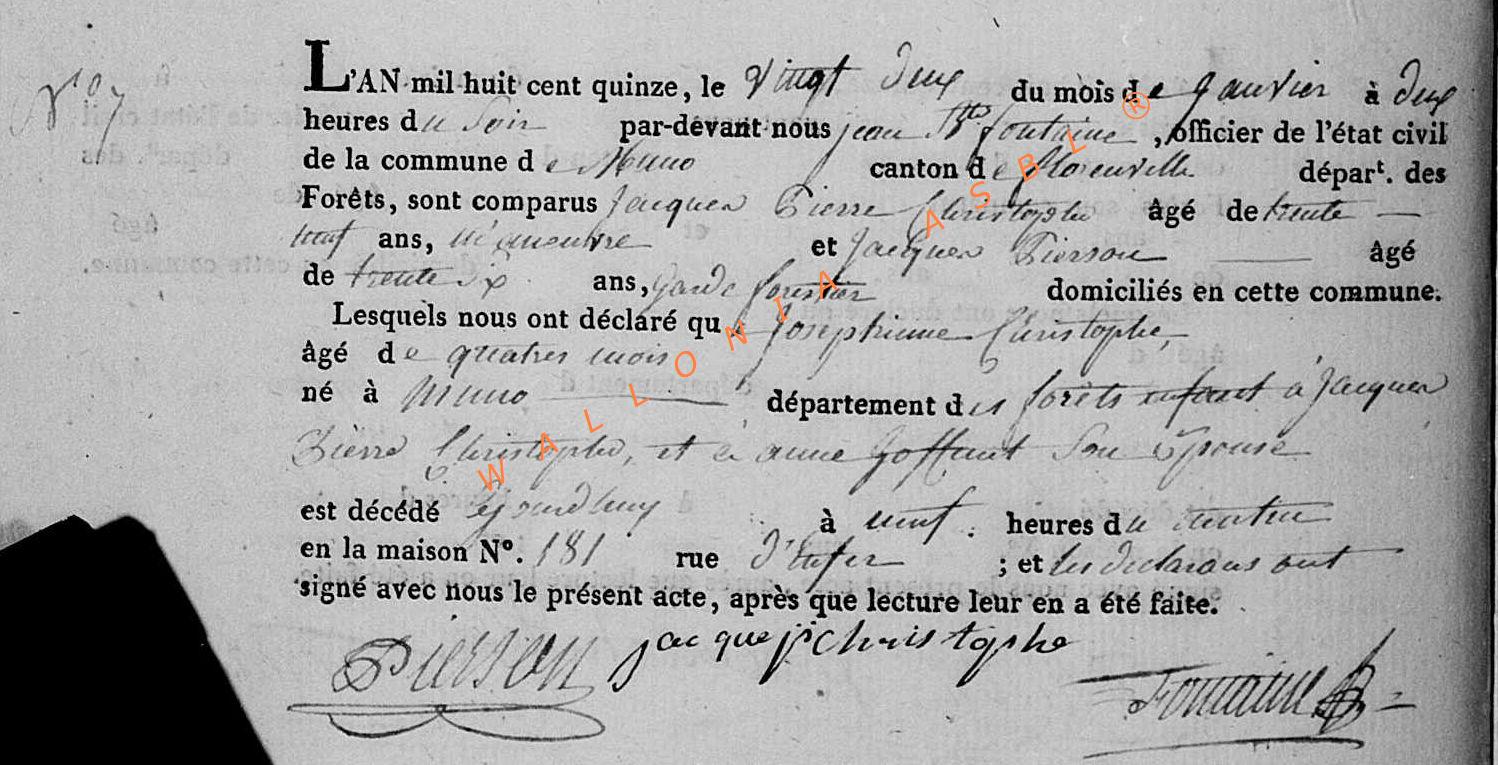 N° 7
L'AN mil huit cent quinze, le vingt deux du mois de Janvier à deux
heures du Soir par-devant nous jean Bte fontaine, officier de l'état civil
de la commune de Muno canton de florenville dépar<sup>t</sup>. des
Forêts, sont comparus Jacques Pierre Christophe âgé de trente
neuf ans, manoeuvre et Jacques Pierson âgé
de trente six ans, garde forestier domiciliés en cette commune.
Lesquels nous ont déclaré que Josephinne Christophe,
âgé de quatres mois
né à Muno département des forêts enfant à Jacques
Pierre Christophe, et à anne Goffinet Son Epouse
est décédé à neuf heures du matin
en la maison N°. 181 rue d'Enfer ; et les déclarans ont
signé avec nous le présent acte, après que lecture leur en a été faite.
Pierson Jacque p christophe
Fontaine
WALLONIA ASBL ®